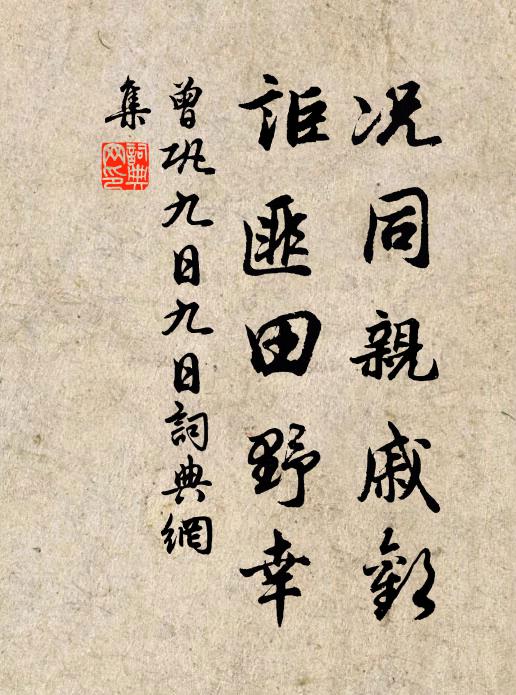 况同親戚歡
詎匪田野幸
曾巩九日九日詞典網
集
詞典網印